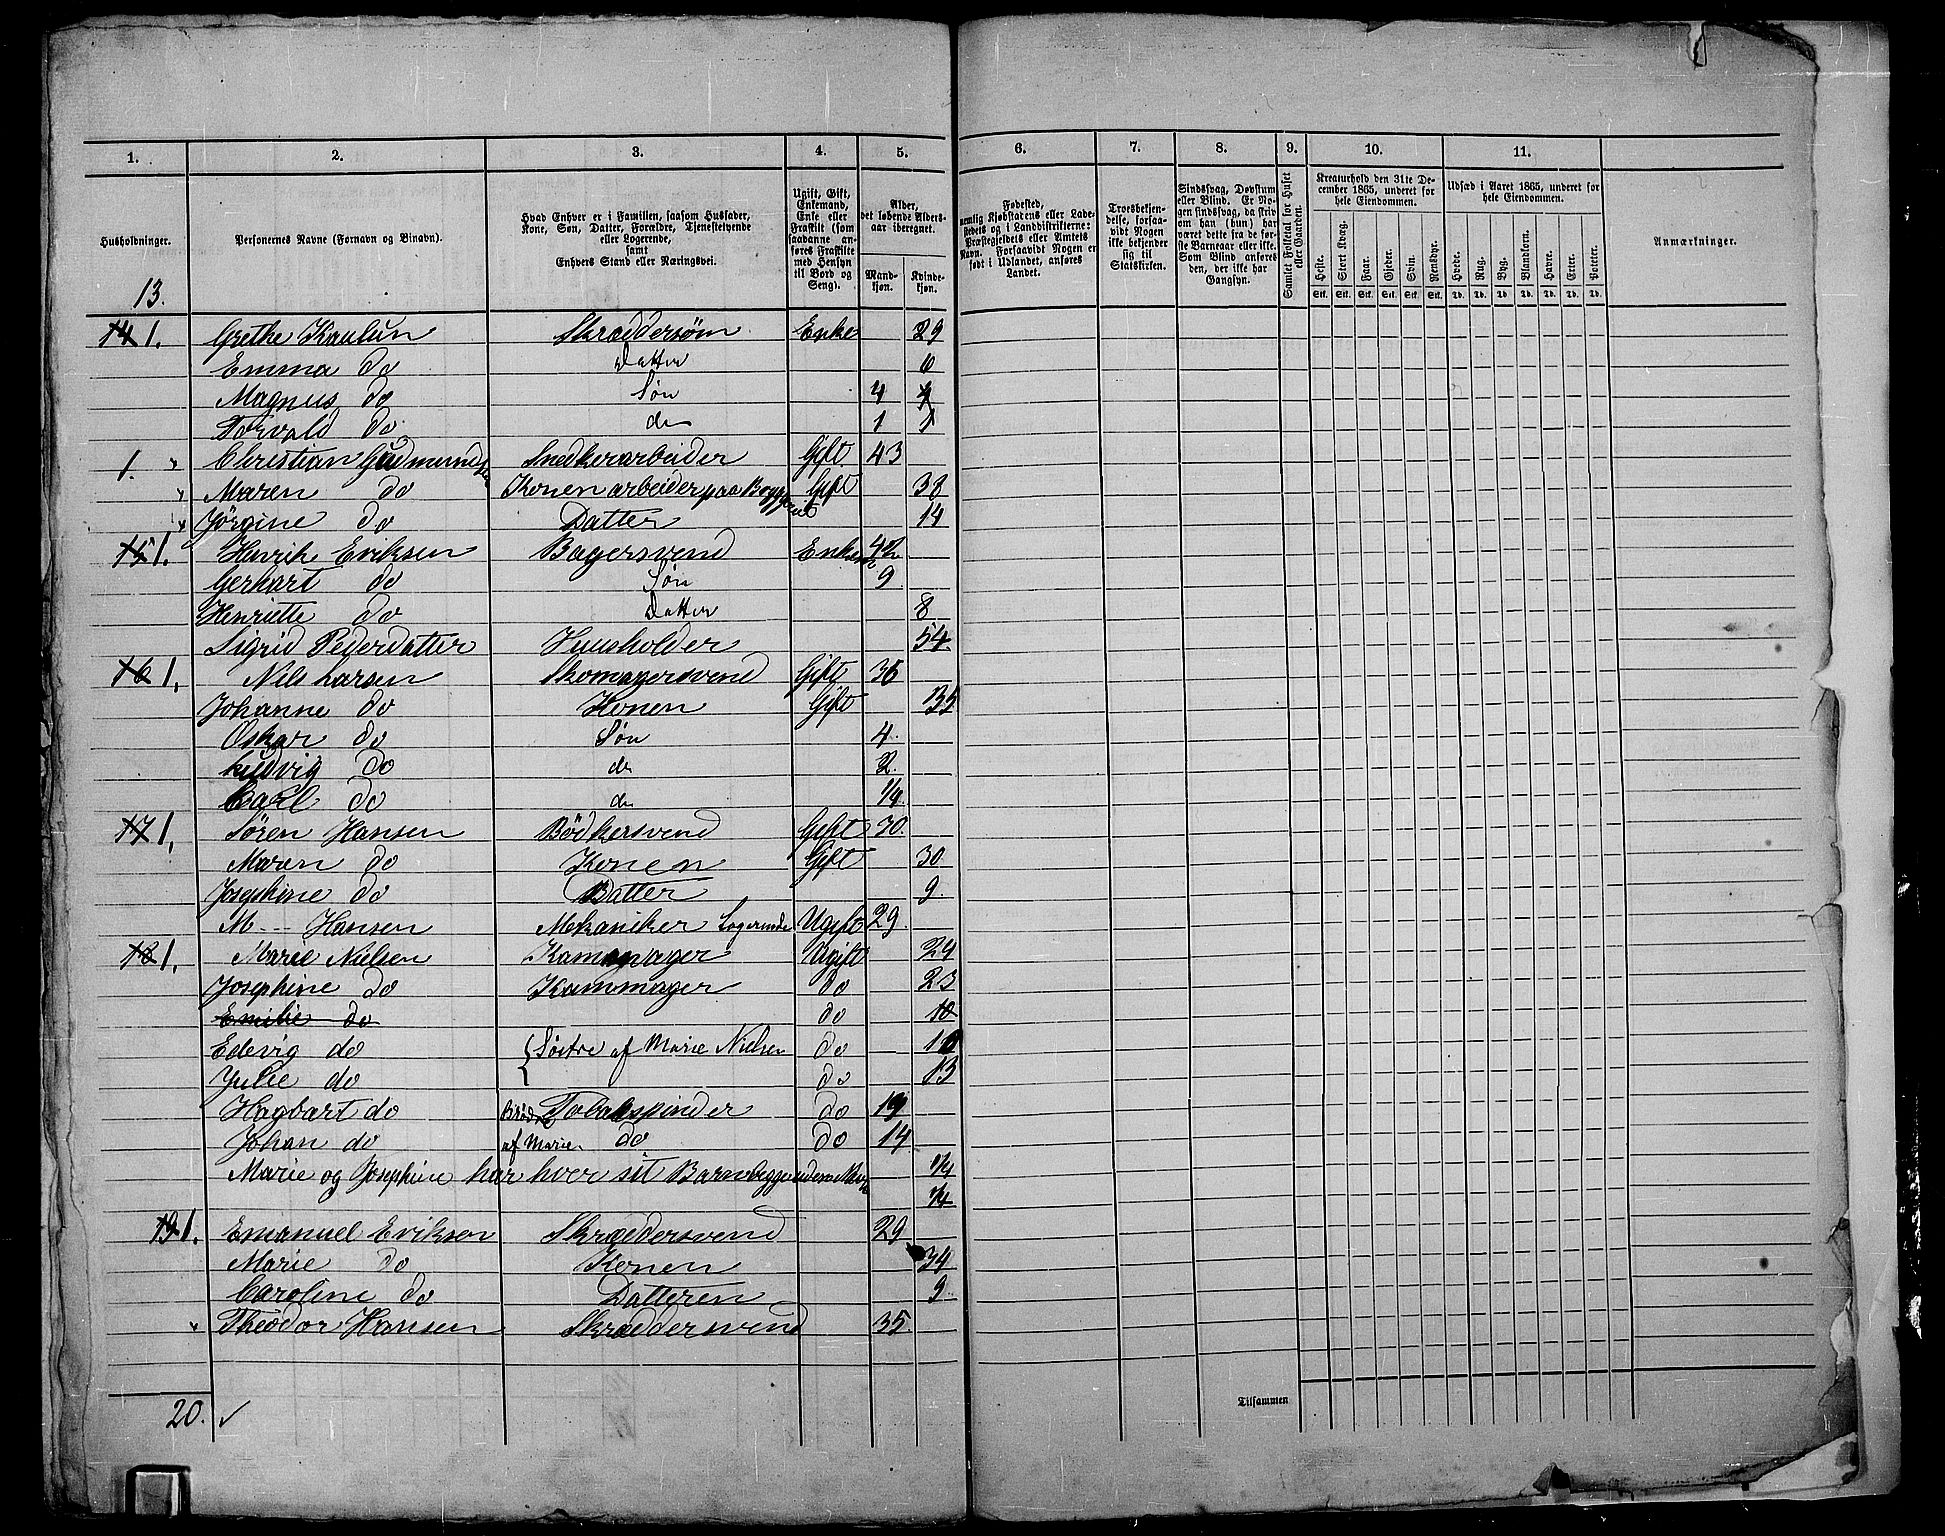 1. 2. 3. 4. 5. 6. 7. 8. 9. 10. 11.
Husholdninger.
Personernes Navne (Fornavn og Binavn).
Hvad Enhver er i Familien, saasom Husfader,
Kone, Søn, Datter, Forældre, Tjenestetyende
eller Logerende,
samt
Enhvers Stand eller Næringsvei.
Ugift, Gift,
Enkemand,
Enke eller
Fraskilt (som
saadanne an-
føres Fraskilte
med Hensyn
til Bord og
Seng).
Alder,
det løbende Alders-
aar iberegnet.
Mand-
kjøn.
Kvinde-
kjøn.
Fødested,
nemlig Kjøbstadens eller Lade-
stedets og i Landdistrikterne:
Præstegjeldets eller Amtets
Navn. Forsaavidt Nogen er
født i Udlandet, anføres
Landet.
Troesbekjen-
delse, forsaa-
vidt Nogen
ikke bekjender
sig til
Statskirken.
Sindssvag, Døvstum
eller Blind. Er No-
gen sindssvag, da skriv
om han (hun) har
været dette fra de før-
ste Barneaar eller ikke.
Som Blind anføres
den, der ikke har
Gangsyn.
Samlet Folketal for Huset
eller Gaarden.
Kreaturhold den 31te De-
cember 1865, underet for
hele Eiendommen.
Heste. Stort Kvæg. Faar. Gjeder. Svin. Rensdyr.
Stk. Stk. Stk. Stk. Stk. Stk.
Udsæd i Aaret 1865, underet for
hele Eiendommen.
Hvede. Rug. Byg. Blandkorn. Havre. Erter. Poteter.
Td. Td. Td. Td. Td. Td. Td.
Anmærkninger.
13.
14 1. Grethe Kaulun Skræddersøm Enke 29
Emma do Datter 6
Magnus do Søn 4 4
Torvald do do 1 1
1. " Christian Gudmundsen Snedkerarbeider Gift 43
" Maren do Konen arbeider paa Byggeriet Gift 38
" Jørgine do Datter 14
15 1. Henrik Eriksen Bagersvend Enkem 42
Gerhart do Søn 9
Henriette do Datter 8
Sigrid Pedersdatter Huusholder 54
16 1. Nils Larsen Skomagersvend Gift 36
Johanne do Konen Gift 35
Oskar do Søn 4
Ludvig do do 2
Carl do do 1/4
17 1. Sören Hansen Bødkersvend Gift 30
Maren do Konen Gift 30
Josephine do Datter 9
M -- Hansen Mekaniker Logerende Ugift 29
18 1. Marie Nielsen Kammager Ugift 24
Josephine do Kammager do 23
Emilie do do 10
Edevig do { Søstre af Marie Nielsen do 10
Julie do do 13
Hagbart do Brødre Tobakspinder do 19
Johan do af Marie. do do 14
Marie og Josephine har hver sit Barn begge 1/4
1/4
19 1. Emanuel Erikson Skræddersvend 29
Marie do Konen 34
Caroline do Datteren 9
" Theodor Hansen Skræddersvend 35
Tilsammen
20. ✓